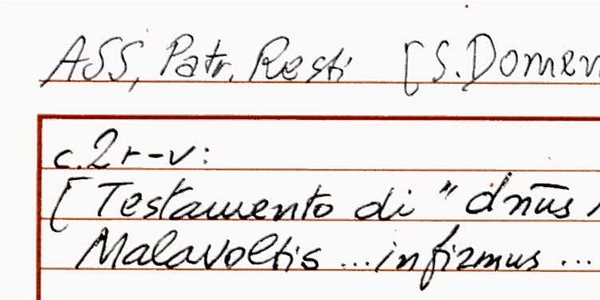 ASS, Patr. Resti [S. Domen
c. 2r-v:
[Testamento di "dn̄us
Malavoltis ... infirmus ...